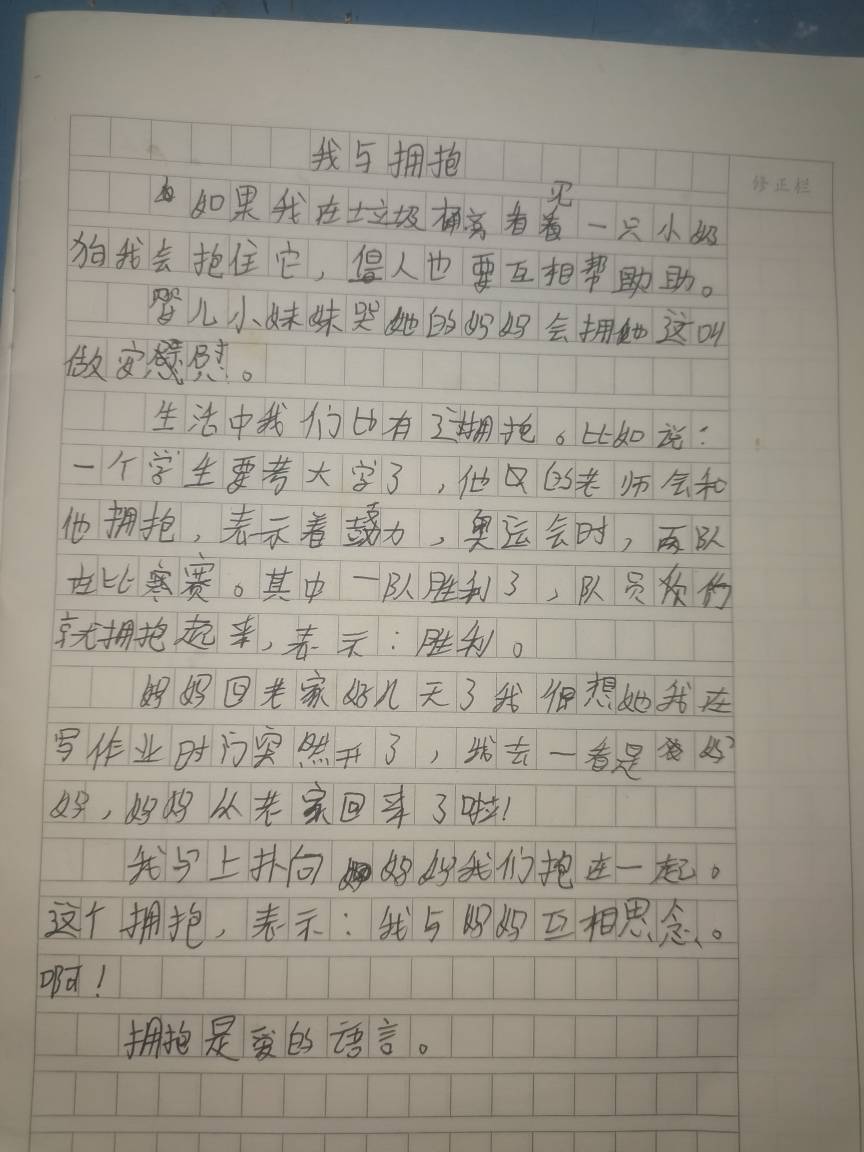 我与拥抱
修正栏
如果我在垃圾桶旁看见一只小奶
狗我会抱住它，但人也要互相帮助助。
婴儿小妹妹哭她的妈妈会拥她这叫
做安慰。
生活中我们也有拥抱。比如说：
一个学生要考大字了，他的老师会和
他拥抱，表示着鼓力，奥运会时，两队
在比赛。其中一队胜利了，队员们
就拥抱起来，表示：胜利。
妈妈回老家好几天了我很想她我在
写作业时门突然开了，我去一看是妈
妈，妈妈从老家回来了啦！
我马上扑向妈妈我们抱在一起。
这个拥抱，表示：我与妈妈互相思念。
啊！
拥抱是爱的语言。